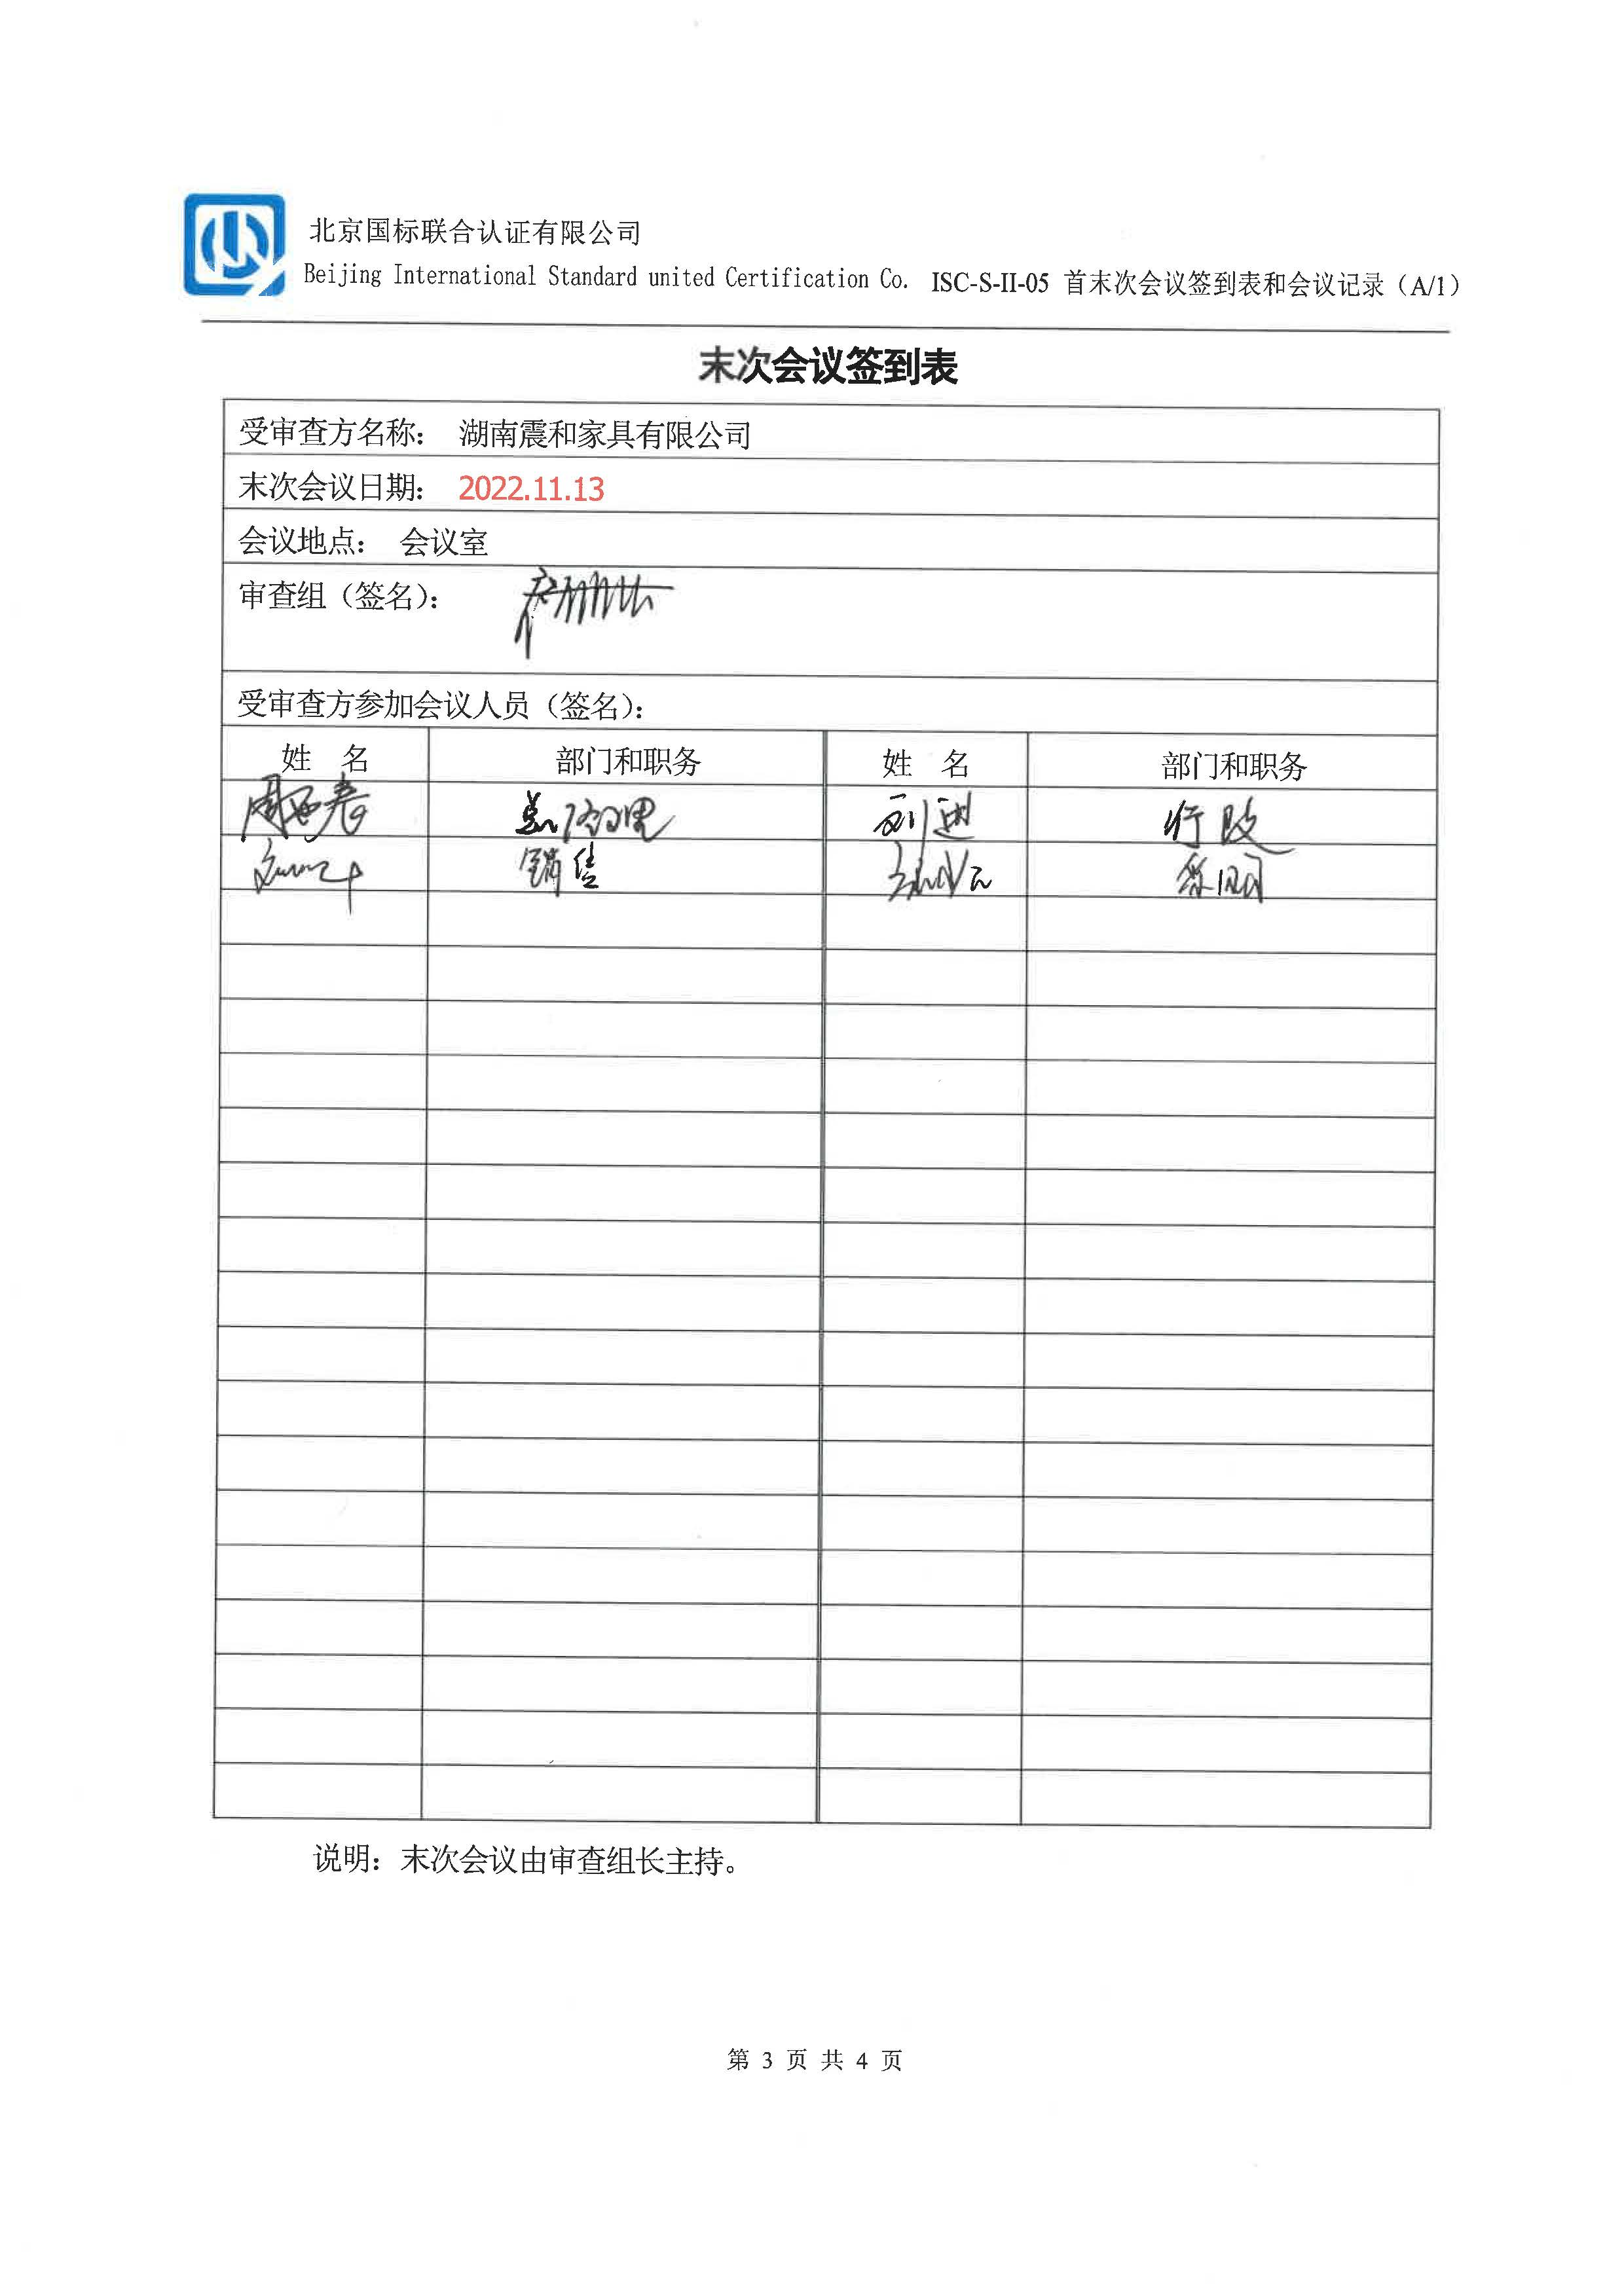 北京国标联合认证有限公司
Beijing International Standard united Certification Co. ISC-S-II-05 首末次会议签到表和会议记录（A/1）
末次会议签到表
受审查方名称： 湖南震和家具有限公司
末次会议日期： 2022.11.13
会议地点： 会议室
审查组（签名）：
受审查方参加会议人员（签名）：
姓 名 部门和职务 姓 名 部门和职务
总经理 行政
销售
说明：末次会议由审查组长主持。
第 3 页 共 4 页